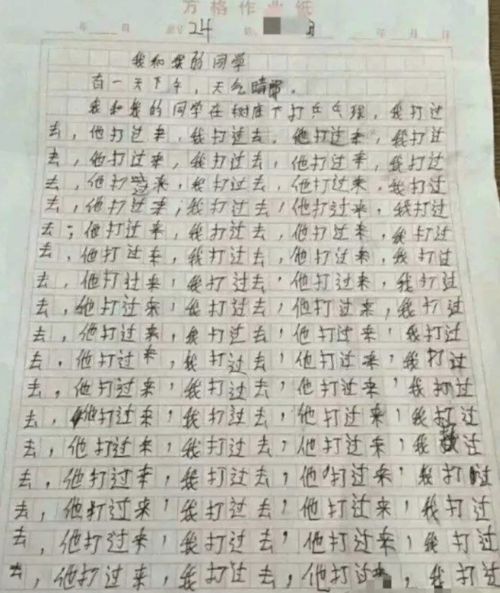 方格作业纸
年 月 日 24 第 3 年 月 日
我和我的同学
有一天下午，天气晴朗。
我和我的同学在树底下打乒乓球，我打过
去，他打过来，我打过去，他打过来，我打过
去，他打过来，我打过去，他打过来，我打过
去，他打过来，我打过去，他打过来，我打过
去，他打过来，我打过去，他打过来，我打过
去，他打过来，我打过去，他打过来，我打过
去，他打过来，我打过去，他打过来，我打过
去，他打过来，我打过去，他打过来，我打过
去，他打过来，我打过去，他打过来，我打过
去，他打过来，我打过去，他打过来，我打过
去，他打过来，我打过去，他打过来，我打过
去，他打过来，我打过去，他打过来，我打过
去，他打过来，我打过去，他打过来，我打过
去，他打过来，我打过去，他打过来，我过
去，他打过来，我打过去，他打过来，我打过
去，他打过来，我打过去，他打过来，我打过
去，他打过来，我打过去，他打过来，我打过
去，他打过来，我打过去，他打过来，我打过